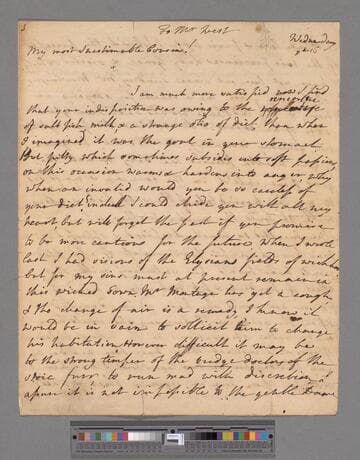 To Mr West
Wednesday
My most Inestimable Cousin!
I am much more satisfied now I find
that your indisposition was owing to the
of salt fish milk & a strange olio of diet, than when
I imagined it was the gout in your stomach
But pitty which sometimes subsides into soft passion
on this occasion warms & hardens into anger, why
when an invalid would you be so careless of
your diet Indeed I could chide you with all my
heart but will forget the past if you promise
to be more cautious for the future. When I wrote
last I had visions of the Elysian fields of wickham
but for my sins must at present remain in
this wicked Town, Mr Montagu has yet a cough
& tho change of air is a remedy I know it
would be in vain to sollicit him to change
his habitation. However difficult it may be
to the strong temper of the doctors of the
stoic fur to run mad with discretion, I
assure it is not impossible to the gentle Dame